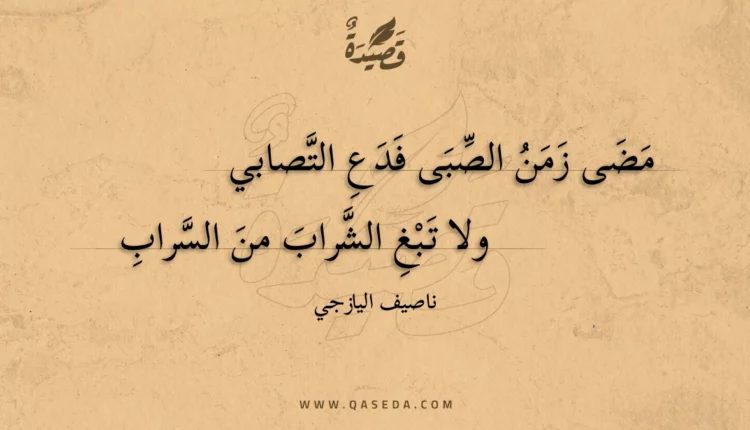 قَصِيْدَةٌ
مَضَى زَمَنُ الصِّبَى فَدَعِ التَّصابي
ولا تَبْغِ الشَّرابَ منَ السَّرابِ
ناصيف اليازجي
WWW.QASEDA.COM